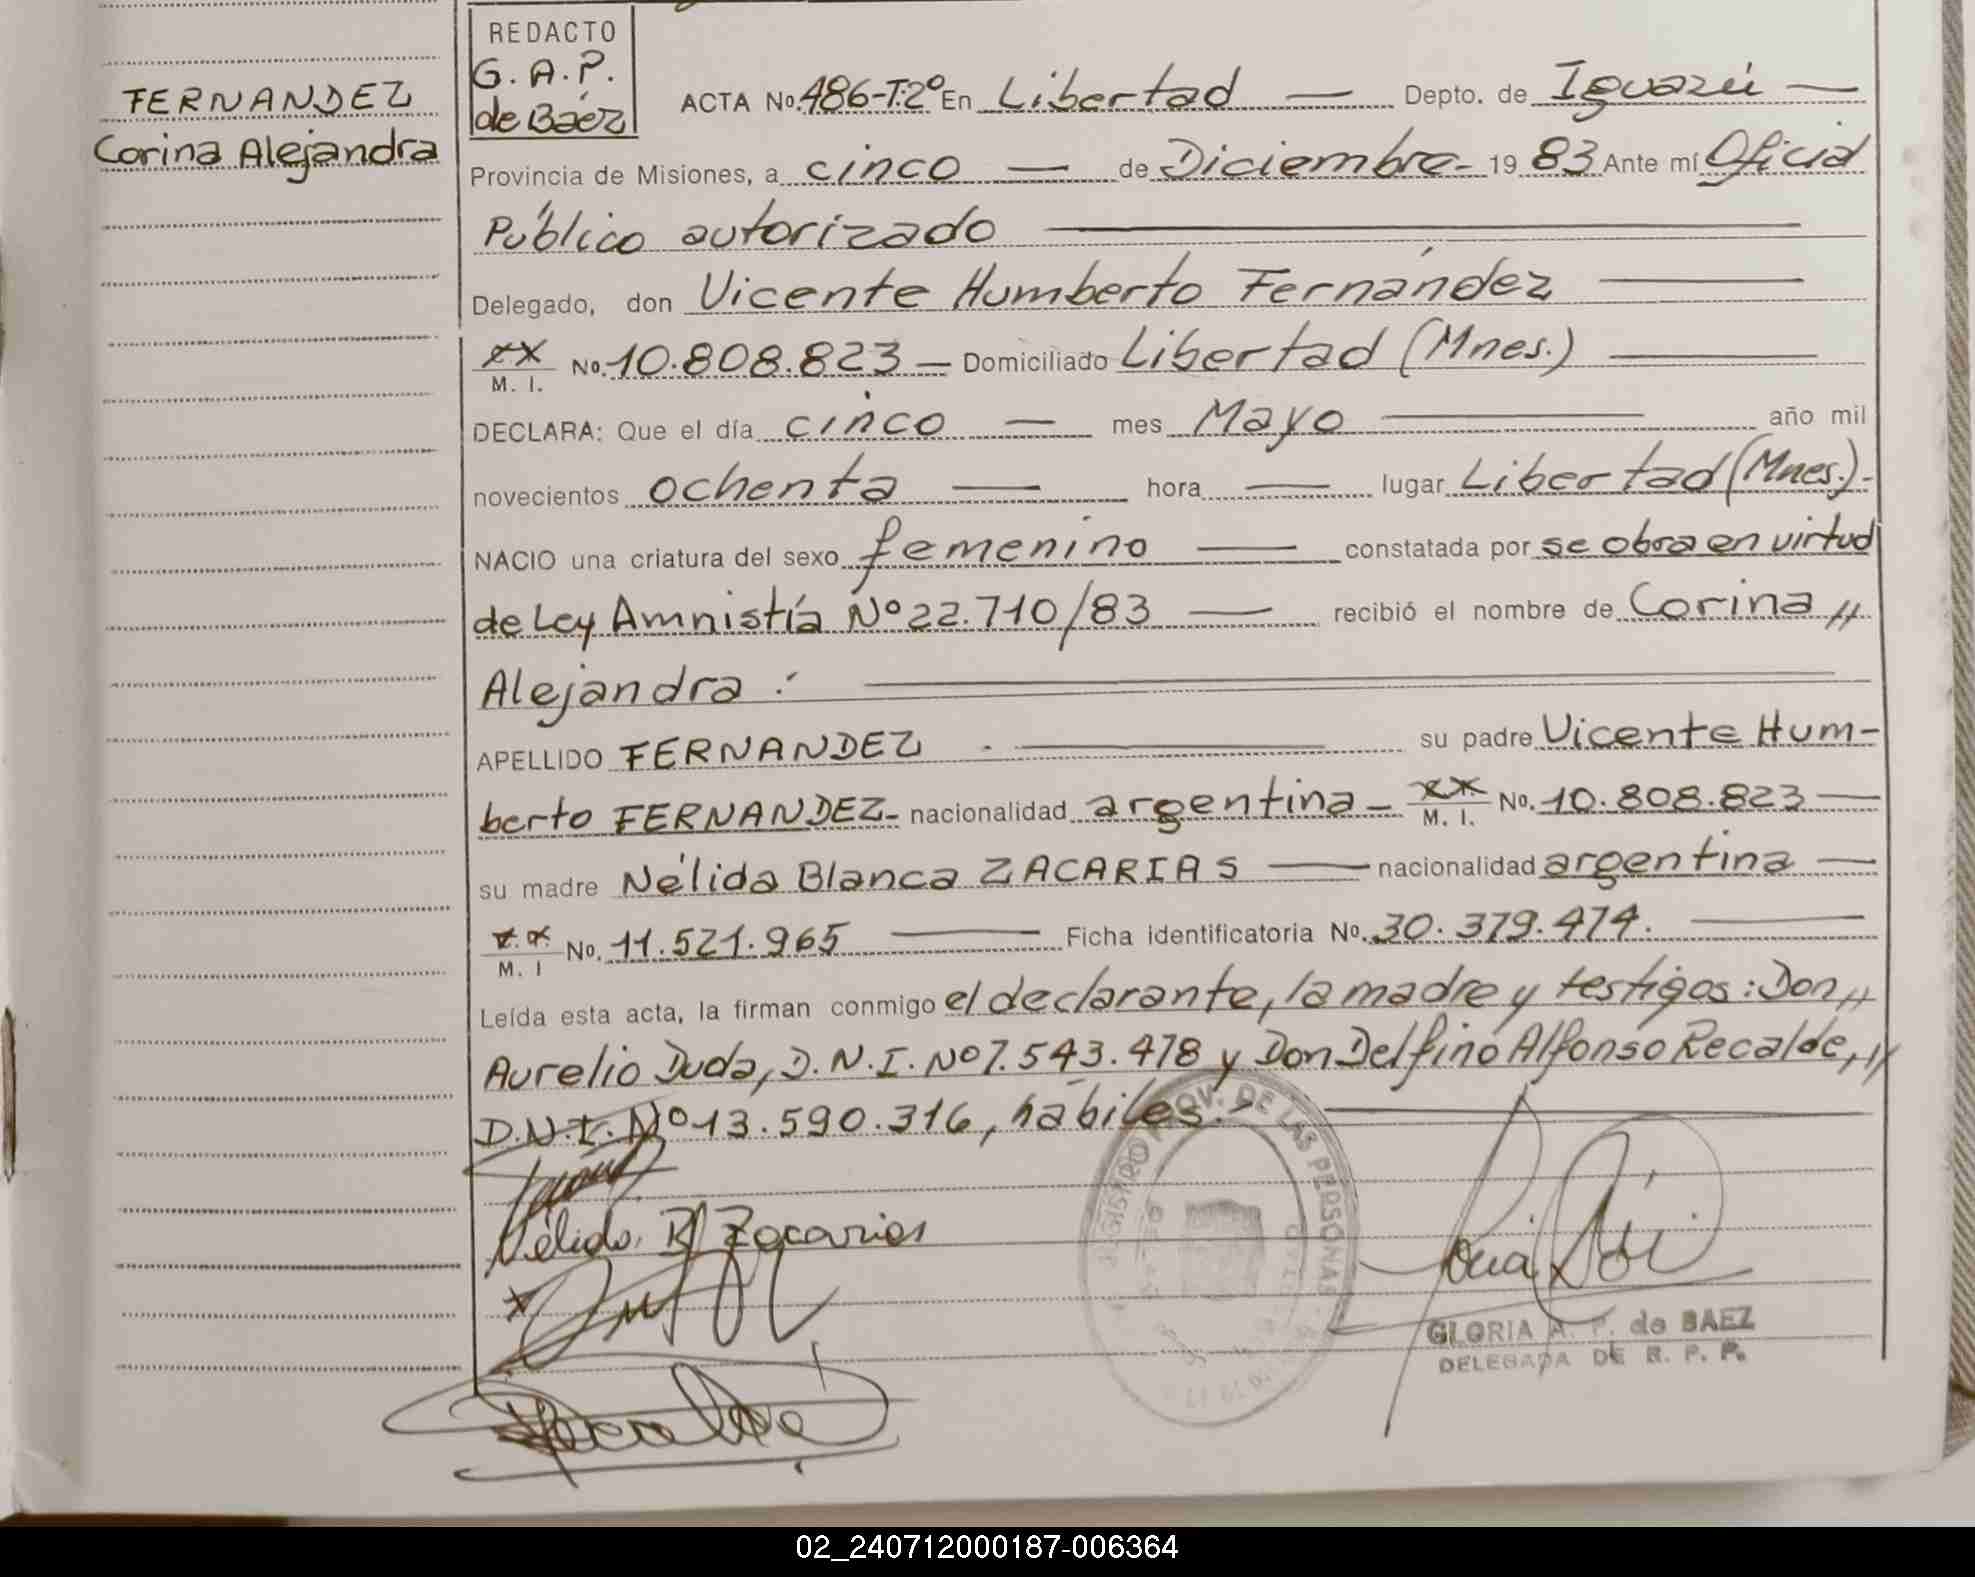 FERNANDEZ
Corina Alejandra
REDACTO
G. A. P.
de Báez
ACTA No. 486-T:2º En Libertad — Depto. de Iguazú —
Provincia de Misiones, a cinco — de Diciembre - 19 83 Ante mí Oficial
Público autorizado —
Delegado, don Vicente Humberto Fernández —
xx M. I. No. 10.808.823 — Domiciliado Libertad (Mnes.) —
DECLARA: Que el día cinco — mes Mayo — año mil
novecientos ochenta — hora — lugar Libertad (Mnes.) -
NACIO una criatura del sexo femenino — constatada por se obra en virtud
de Ley Amnistía Nº 22.710/83 — recibió el nombre de Corina //
Alejandra .- —
APELLIDO FERNANDEZ . — su padre Vicente Hum-
berto FERNANDEZ - nacionalidad argentina - xx M. I. No. 10.808.823 —
su madre Nélida Blanca ZACARIAS — nacionalidad argentina —
x.x. M. I No. 11.521.965 — Ficha identificatoria No. 30.379.474. —
Leída esta acta, la firman conmigo el declarante, la madre y testigos: Don //
Aurelio Duda, D.N.I. Nº 7.543.478 y Don Delfino Alfonso Recalde, //
D.N.I. Nº 13.590.316, hábiles.- —
Nélida B Zacarias
REGISTRO PROV. DE LAS PERSONAS
GLORIA A. P. de BAEZ
DELEGADA DE R. P. P.
02_240712000187-006364